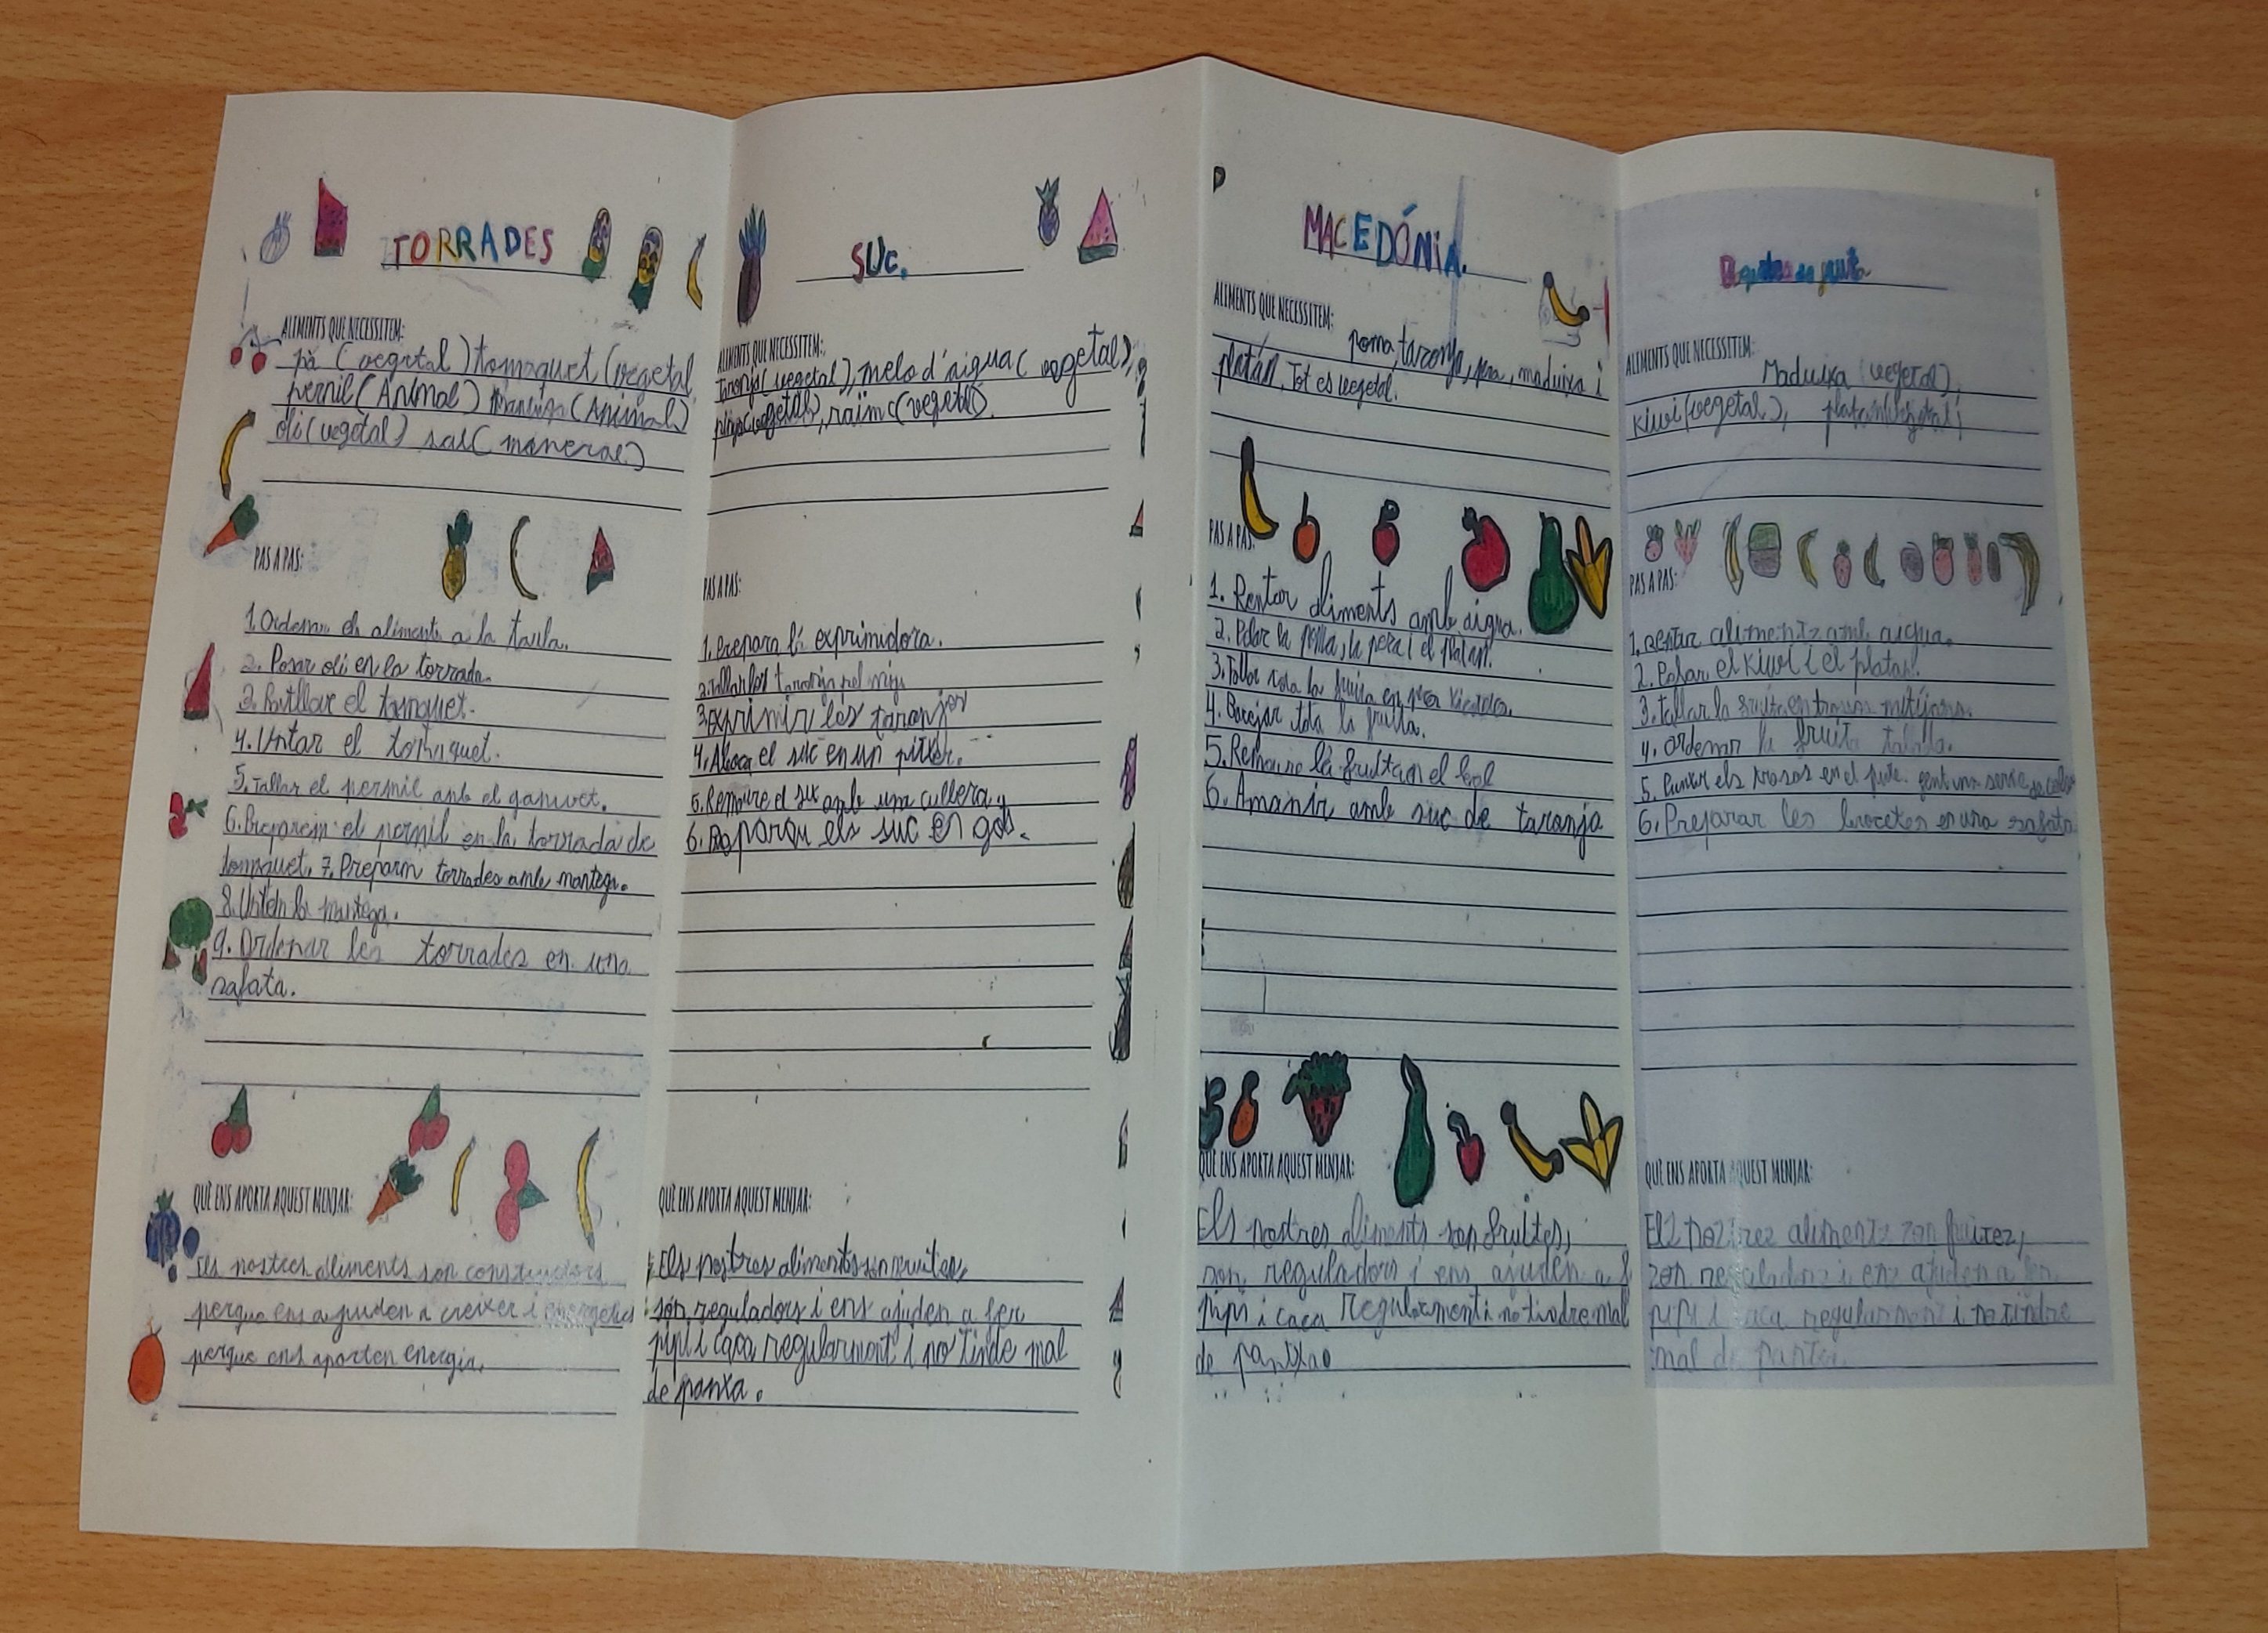 TORRADES
ALIMENTS QUE NECESSITEM:
pà (vegetal) tomaquet (vegetal
pernil (Animal) (Animal)
oli (vegetal) sal (maneral)
PAS A PAS:
1. Ordenar els aliments a la taula.
2. Posar oli en la torrada.
3. Ratllar el tomquet.
4. Untar el tomaquet.
5. Tallar el pernil amb el ganivet.
6. Preparem el pernil en la torrada de
tomaquet. 7. Preparem torrades amb mantega.
8. Untem la mantega.
9. Ordenar les torrades en una
safata.
QUÈ ENS APORTA AQUEST MENJAR:
Els nostres aliments són constructors
perque ens ajuden a créixer i energetics
perque ens aporten energia.
SUC.
ALIMENTS QUE NECESSITEM:
Taronja (vegetal), melo d'aigua (vegetal),
pinya (vegetal), raïm (vegetal).
PAS A PAS:
1. Prepara l' exprimidora.
2. Tallar les taronja pel mig
3. exprimir les taronjes
4. Aboca el suc en un pitxer.
5. Remoure el suc amb una cullera.
6. els suc en got.
QUÈ ENS APORTA AQUEST MENJAR:
Els nostres aliments son fruites,
són reguladors i ens ajuden a fer
pipi i caca regularment i no tinde mal
de panxa.
MACEDÓNIA.
ALIMENTS QUE NECESSITEM:
poma, taronja, pera, maduixa i
platán. Tot es vegetal.
PAS A PAS:
1. Rentar aliments amb aigua.
2. Pelar la poma, la pera i el plàtan.
3. Tallar tota la fruita en
4. Barejar tota la fruita.
5. Remoure la fruita en el bol
6. Amanir amb suc de taronja
QUÈ ENS APORTA AQUEST MENJAR:
Els nostres aliments son fruites,
son reguladors i ens ajuden a
pipi i caca Regularment i no tindre mal
de panxa
de fruita
ALIMENTS QUE NECESSITEM:
Maduixa (vegetal),
kiwi (vegetal), platan (vegetal)
PAS A PAS:
1. rentar aliments amb aigua.
2. Pelar el kiwi i el platan.
3. Tallar la fruita en trosos mitjans.
4. Ordenar la fruita tallada.
5. Punxar els trosos en el fent una serie de
6. Preparar les brocetes en una safata
QUÈ ENS APORTA AQUEST MENJAR:
Els nostres aliments son fruites,
son reguladors i ens ajuden a fer
pipi i caca regularment i no tindre
mal de